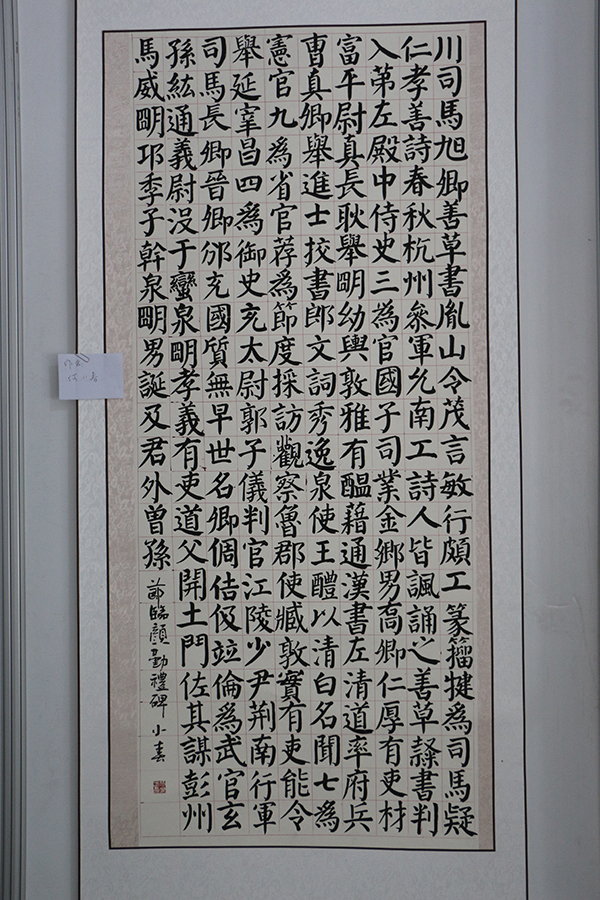 川司馬旭卿善草書胤山令茂言敏行頗工篆籀犍為司馬疑
仁孝善詩春秋杭州參軍允南工詩人皆諷誦之善草隸書判
入第左殿中侍史三為官國子司業金鄉男喬卿仁厚有吏材
富平尉真長耿舉眀幼輿敦雅有醞藉通漢書左清道率府兵
曹真卿舉進士挍書郎文詞秀逸泉使王醴以清白名聞七為
憲官九為省官荐為節度採訪觀察魯郡使臧敦實有吏能令
舉延宰昌四為御史充太尉郭子儀判官江陵少尹荊南行軍
司馬長卿晉卿邠充國質無早世名卿倜佶伋竝倫為武官玄
孫紘通義尉沒于蠻泉眀孝義有吏道父開土門佐其謀彭州
馬威眀邛季子幹泉眀男誕及君外曾孫
節臨顏勤禮碑 小春
作者
何小春